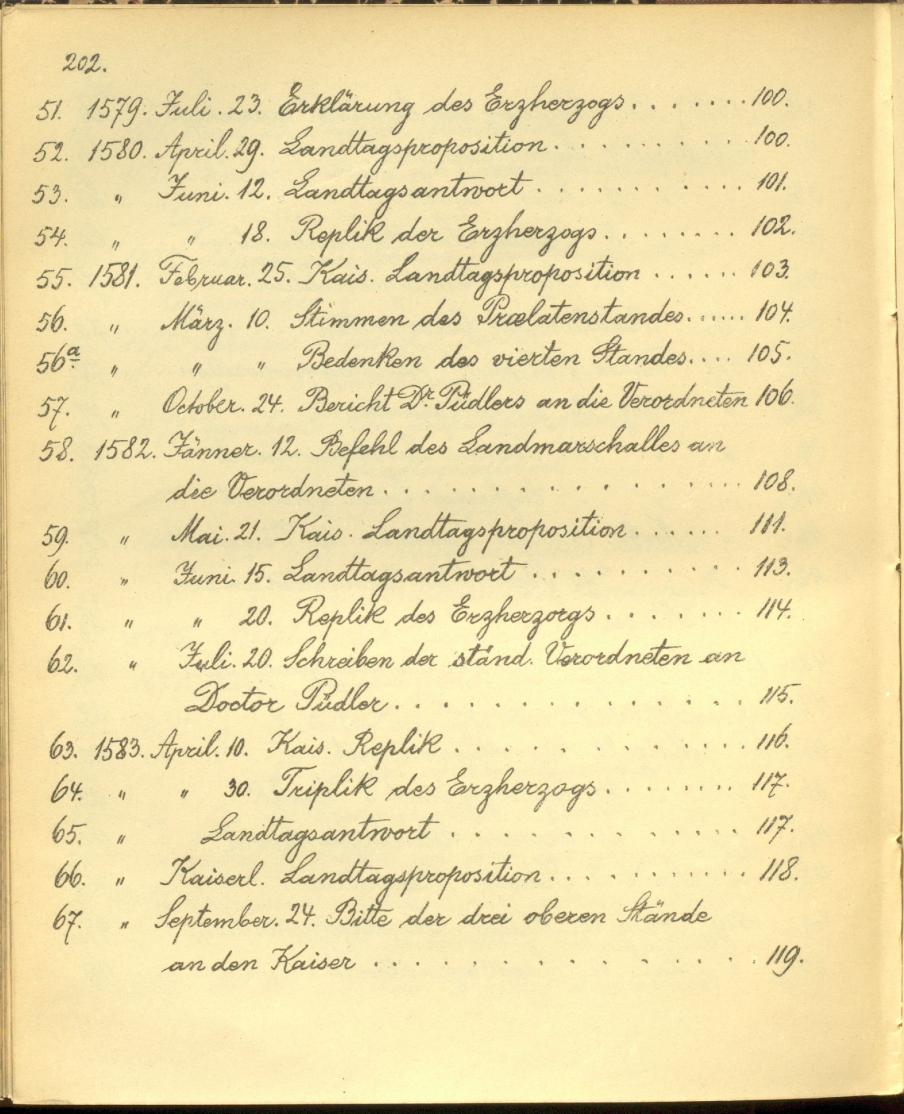 202.
51. 1579. Juli. 23. Erklärung des Erzherzogs. . . . . . . 100.
52. 1580. April. 29. Landtagsproposition . . . . . . . . . . 100.
53. „ Juni. 12. Landtagsantwort . . . . . . . . . . . 101.
54. „ „ 18. Replik der Erzherzogs. . . . . . . . 102.
55. 1581. Februar. 25. Kais. Landtagsproposition . . . . . . 103.
56. „ März. 10. Stimmen des Prælatenstandes. . . . . . 104.
56a. „ „ „ Bedenken des vierten Standes. . . . 105.
57. „ October. 24. Bericht Dr. Püdlers an die Verordneten 106.
58. 1582. Jänner. 12. Befehl des Landmarschalles an
die Verordneten . . . . . . . . . . . . . . . . . 108.
59. „ Mai. 21. Kais. Landtagsproposition . . . . . . 111.
60. „ Juni. 15. Landtagsantwort . . . . . . . . . . 113.
61. „ „ 20. Replik des Erzherzorgs . . . . . . . . 114.
62. „ Juli. 20. Schreiben der ständ. Verordneten an
Doctor Püdler . . . . . . . . . . . . . . . . 115.
63. 1583. April. 10. Kais. Replik . . . . . . . . . . . . 116.
64. „ „ 30. Triplik des Erzherzogs . . . . . . . . 117.
65. „ Landtagsantwort . . . . . . . . . . . . 117.
66. „ Kaiserl. Landtagsproposition . . . . . . . . . . . 118.
67. „ September. 24. Bitte der drei oberen Stände
an den Kaiser . . . . . . . . . . . . . . . . 119.